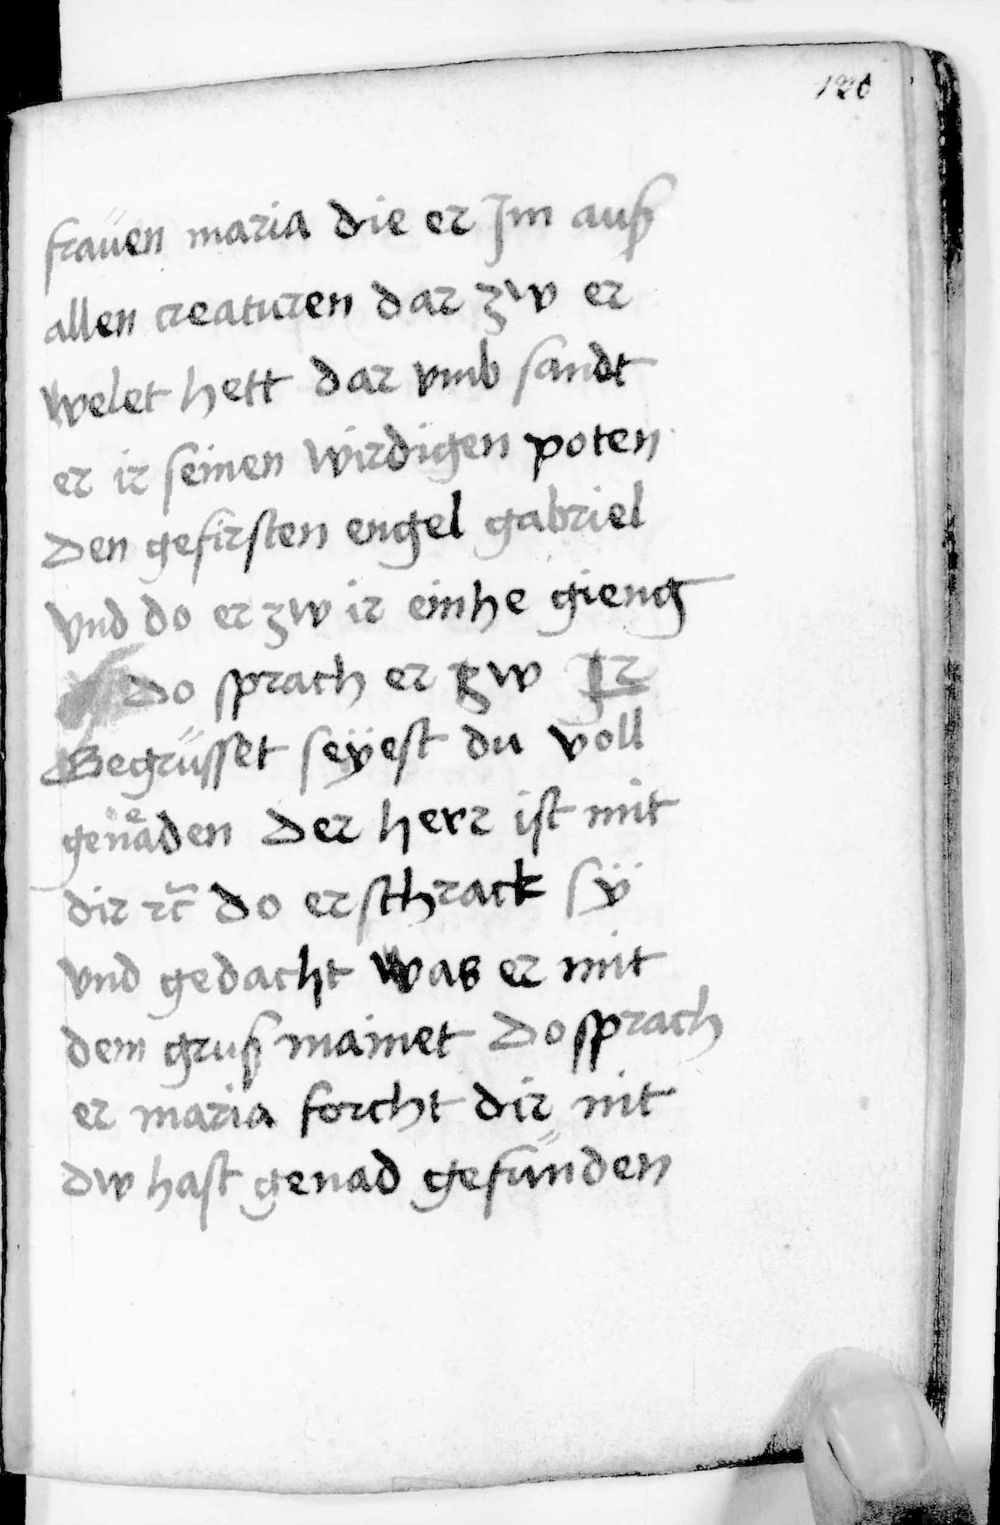 126
fraüen maria die er Jm auß
allen creaturen dar zw er
welet hett dar vmb sandt
er ir seinen wirdigen poten
Den gefirsten engel gabriel
vnd do er zw ir einhe gieng
Do sprach er zw Ir
Begrüsset seÿest du voll
genaͤden Der herr ist mit
dir ⁊c̃ do erschrack sÿ
vnd gedacht was er mit
dem gruß mainet Do sprach
er maria forcht dir nit
Dw hast genad gefünden